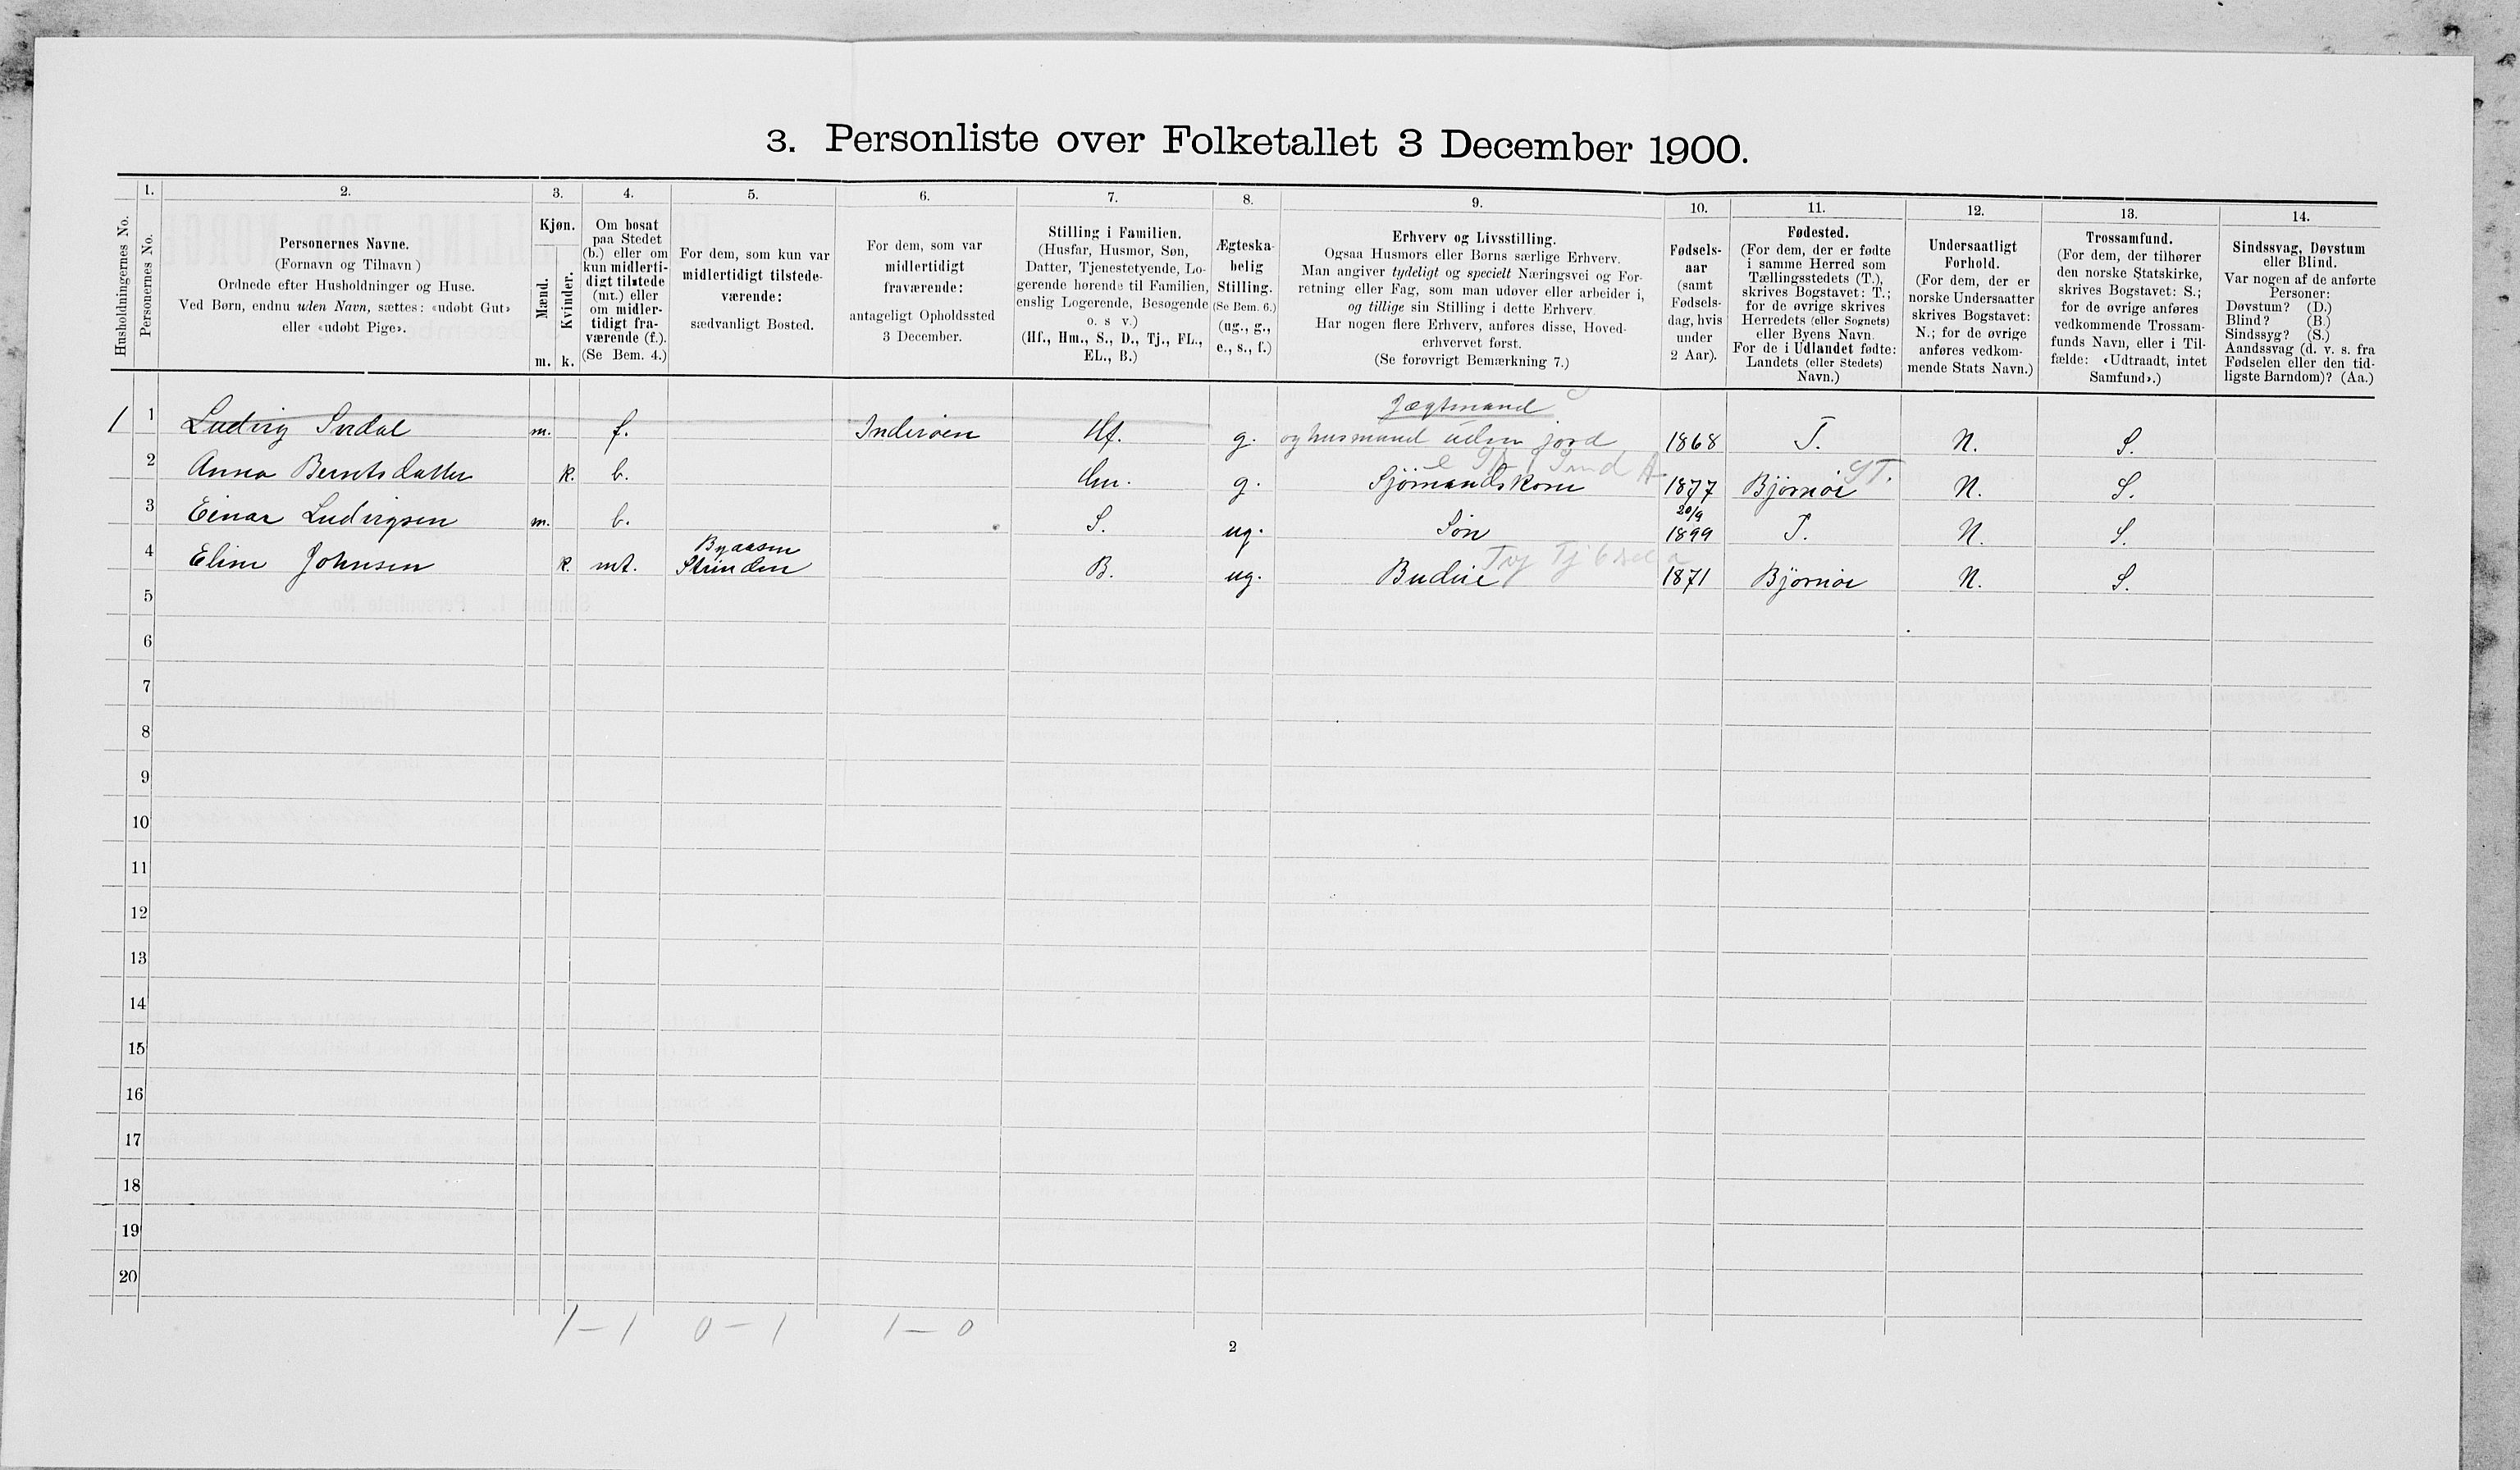 3. Personliste over Folketallet 3 December 1900.
Husholdningernes No.
1.
Personernes No.
2.
Personernes Navne.
(Fornavn og Tilnavn )
Ordnede efter Husholdninger og Huse.
Ved Børn, endnu uden Navn, sættes: «udøbt Gut»
eller «udøbt Pige».
3.
Kjøn.
Mænd.
Kvinder.
m. k.
4.
Om bosat
paa Stedet
(b.) eller om
kun midlerti-
digt tilstede
(mt.) eller
om midler-
tidigt fra-
værende (f.).
(Se Bem. 4.)
5.
For dem, som kun var
midlertidigt tilstede-
værende:
sædvanligt Bosted.
6.
For dem, som var
midlertidigt
fraværende:
antageligt Opholdssted
3 December.
7.
Stilling i Familien.
(Husfar, Husmor, Søn,
Datter, Tjenestetyende, Lo-
gerende hørende til Familien,
enslig Logerende, Besøgende
o. s v.)
(Hf., Hm., S., D., Tj., FL.,
EL., B.)
8.
Ægteska-
belig
Stilling.
(Se Bem. 6.)
(ug., g.,
e., s., f.)
9.
Erhverv og Livsstilling.
Ogsaa Husmors eller Børns særlige Erhverv.
Man angiver tydeligt og specielt Næringsvei og For-
retning eller Fag, som man udøver eller arbeider i,
og tillige sin Stilling i dette Erhverv.
Har nogen flere Erhverv, anføres disse, Hoved-
erhvervet først.
(Se forøvrigt Bemærkning 7.)
10.
Fødsels-
aar
(samt
Fødsels-
dag, hvis
under
2 Aar).
11.
Fødested.
(For dem, der er fødte
i samme Herred som
Tællingsstedets (T.),
skrives Bogstavet: T.;
for de øvrige skrives
Herredets (eller Sognets)
eller Byens Navn.
For de i Udlandet fødte:
Landets (eller Stedets)
Navn.)
12.
Undersaatligt
Forhold.
(For dem, der er
norske Undersaatter
skrives Bogstavet:
N.; for de øvrige
anføres vedkom-
mende Stats Navn.)
13.
Trossamfund.
(For dem, der tilhører
den norske Statskirke,
skrives Bogstavet: S.;
for de øvrige anføres
vedkommende Trossam-
funds Navn, eller i Til-
fælde: «Udtraadt, intet
Samfund».)
14.
Sindssvag, Døvstum
eller Blind.
Var nogen af de anførte
Personer:
Døvstum? (D.)
Blind? (B.)
Sindssyg? (S.)
Aandssvag (d. v. s. fra
Fødselen eller den tid-
ligste Barndom)? (Aa.)
Jægtmand
1 1 Ludvig Indal m. f. Inderøen Hf. g. og husmand uden jord 1868 T. N. S.
2 Anna Berntsdatter k. b. Hm. g. Sjömandskone 1877 Björnør ST. N. S.
20/9
3 Einar Ludvigsen m. b. S. ug. Søn 1899 T. N. S.
Byaasen
4 Eline Johnsen k. mt. Strinden B. ug. Budeie 1871 Björnør N. S.
5
6
7
8
9
10
11
12
13
14
15
16
17
18
19
20
1 - 1 0 - 1 1 - 0
2